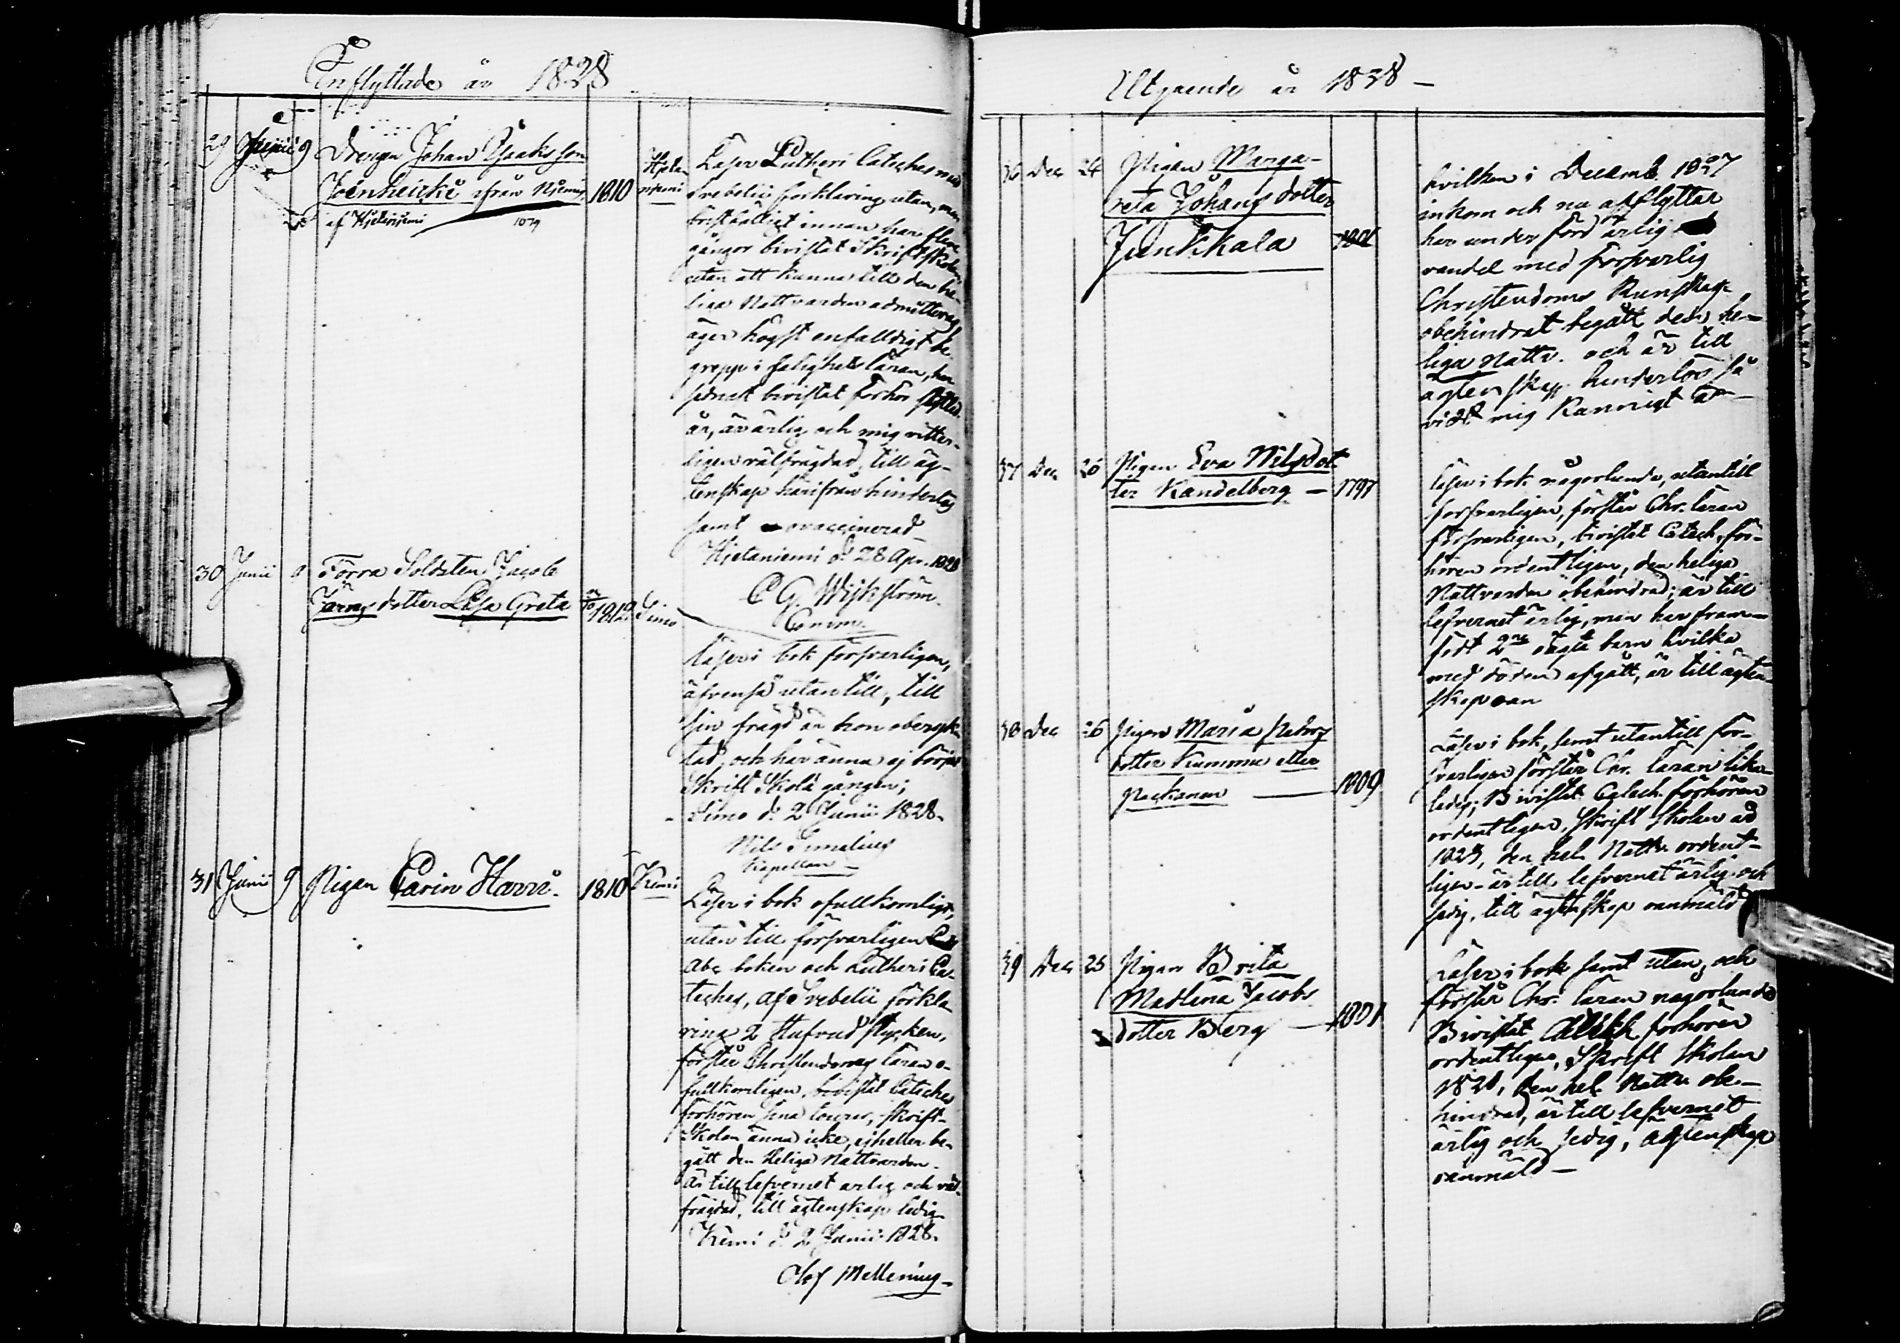 Inflyttade år 1828
29 Junii 9 Drengen Johan Isaaksson
Joenheicki ifrån Niemis 1810 Hieta-
niemi
af Hietaniemi
Läser Lutheri Catches med
Svebelii förklaring utan, men
bristfälligt innan har flere
gångor bivistat Skriftskolan
utan att kunna till den he-
liga Nattvarden admitteras
äger högst enfalldigt be-
grepp i salighets läran, har
sednast bivistat förhör
år, är ärlig och mig vitter-
ligen välfrägdad, till äg-
tenskap härifrån hinderlös
samt ovaccinerad
Hietaniemi d. 28 Apr. 1828
C G Wijkström
Comm.
30 Junii 9 Förra Soldaten Jacob
Järns dotter Lisa Greta 1812 Simo
Läser i bok försvarligen,
äfvenså utantill, till
sin frägd är hon oberyk-
tad, och har ännu ej börjat
Skrift Skola gången;
Simo d. 2 Junii 1828.
Nils Simelius
Kapellan
31 Junii 9 Pigan Carin Harri 1810 Kemi
Läser i bok ofullkomligt,
utan till försvarligen
Abc boken och Lutheri Ca-
teches, af Svebelii förkla-
ring 2 Hufvud stycken,
förstår Christendoms läran o-
fullkomligen, bivistat Catches
förhören sina tourer, skrift-
Skolan ännu icke, ej heller be-
gått den Heliga Nattvarden.
Är till lefvernet ärlig och väl-
frägdad, till ägtenskap ledig
Kemi d. 2 Junii 1828.
Olof Mellenius
Utgaende år 1828
36 Dec 24 Pigan Marga-
reta Johans dotter
Junkkala
hvilken i Decemb. 1827
inkom och nu afflyttar
har under förd ärlig
vandel med försvarlig
Christendoms Kunskap
obehindrat begått den he-
liga Nattv. och är till
ägtenskap hinderlös så
vidt mig kunnigt är
37 Dec 26 Pigan Eva Nilsdot
ter Kandelberg 1797
läser i bok någorlunda, utantill
försvarligen, förstår Chr. läran
försvarligen, bivistat Catech. för-
hören ordentligen, den heliga
Nattvarden obehindrad; är till
lefvernet ärlig, men har fram-
födt 2ne oägta barn hvilka
med döden afgått, är till ägten-
skap
38 Dec 26 Pigan Maria Peders
dotter Kummu eller
Peckanen 1809
Läser i bok, samt utantill för-
svarligen förstår Chr. läran lika-
ledes; Bivistat Catech. förhören
ordentligen, Skrift Skolan
1825, den hel. Nattv. ordent-
ligen är till lefvernet ärlig och
sedig, till ägtenskap oanmäld
39 Dec 25 Pigan Brita
Madlena Jacobs
dotter Berg 1801
Läser i bok samt utan, och
förstår Chr. läran någorlunda
Bivistat Catech förhören
ordentligen, Skrift Skolan
1821, den hel. Nattv. obe-
hindrad, är till lefvernet
ärlig och sedig, ägtenskap
oanmäld